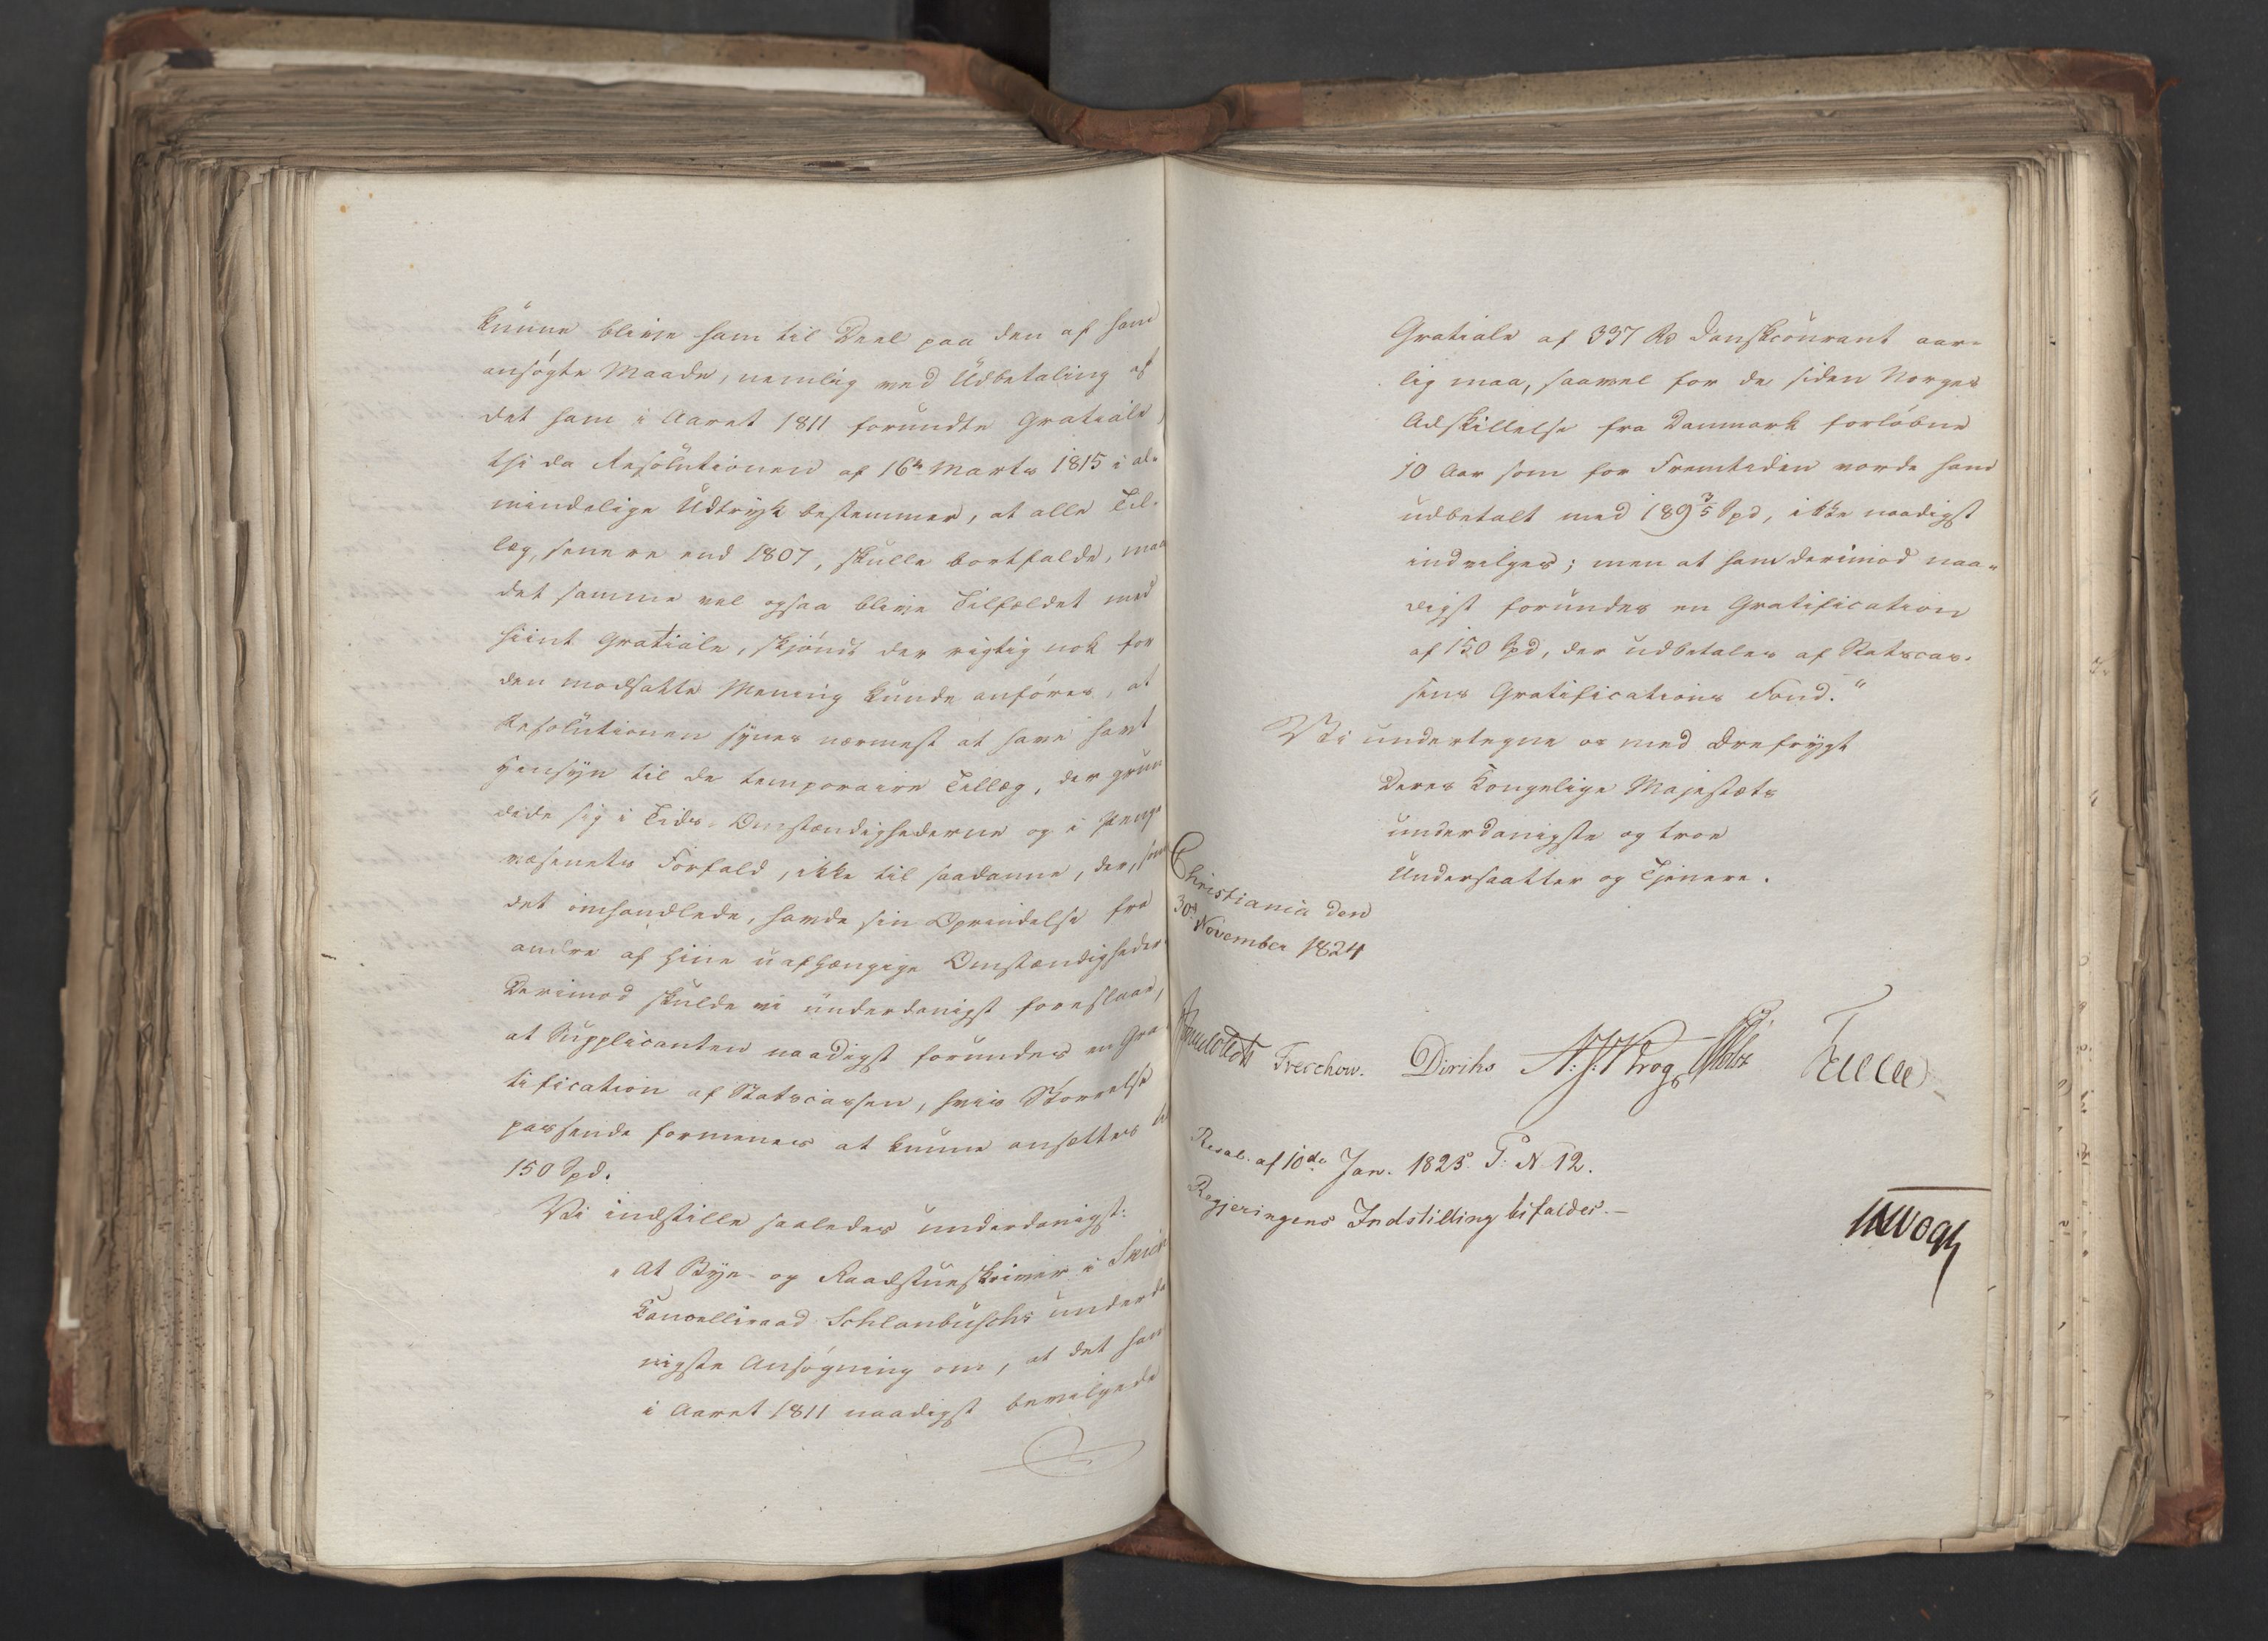 kunne blive ham til Deel paa den af ham
ansøgte Maade, nemlig ved Udbetaling af
det ham i Aaret 1811 forundte Gratiale,
thi da Resolutionen af 16de Marts 1815 i al-
mindelige Udtryk bestemmer, at alle Til-
læg, senere end 1807, skulle bortfalde, maa
det samme vel ogsaa blive Tilfældet med
hiint Gratiale, skjønt der rigtig nok for
den modsatte Mening kunde anføres, at
Resolutionen synes nærmest at have havt
Hensyn til de temporaire Tillæg, der grun
dede sig i Tids-Omstændighederne og i Penge
væsenets Forfald, ikke til saadanne, der, som
det omhandlede, havde sin Oprindelse fra
andre af hine uafhængige Omstændigheder.
Derimod skulde vi underdanigst foreslaae,
at Supplicanten naadigst forundes en Gra
tification af Statscassen, hvis Størrelse
passende formenes at kunne ansættes til
150 Spd.
Vi indstille saaledes underdanigst:
"At Bye- og Raadstueskriver i
Cancelliraad Schlanbuschs underda
nigste Ansøgning om, at det ham
i Aaret 1811 naadigst bevilgede
Gratiale af 337 Rd Danskcourant aar-
lig maa, saavel for de siden Norges
Adskillelse fra Danmark forløbne
10 Aar som for Fremtiden vorde ham
udbetalt med 189 3/5 Spd, ikke naadigst
indvilges; men at ham derimod naa-
digst forundes en Gratification
af 150 Spd, der udbetales af Statscas-
sens Gratifications Fond."
Vi undertegne os med Ærefrygt
Deres Kongelige Majestæts
underdanigste og troe
Undersaatter og Tjenere.
Christiania den
30te November 1824
Treschow. Diriks N: J: Krog
Resol. af 10de Jan. 1825. P: N 12.
Regjeringens Indstilling bifaldes.—
Vogt